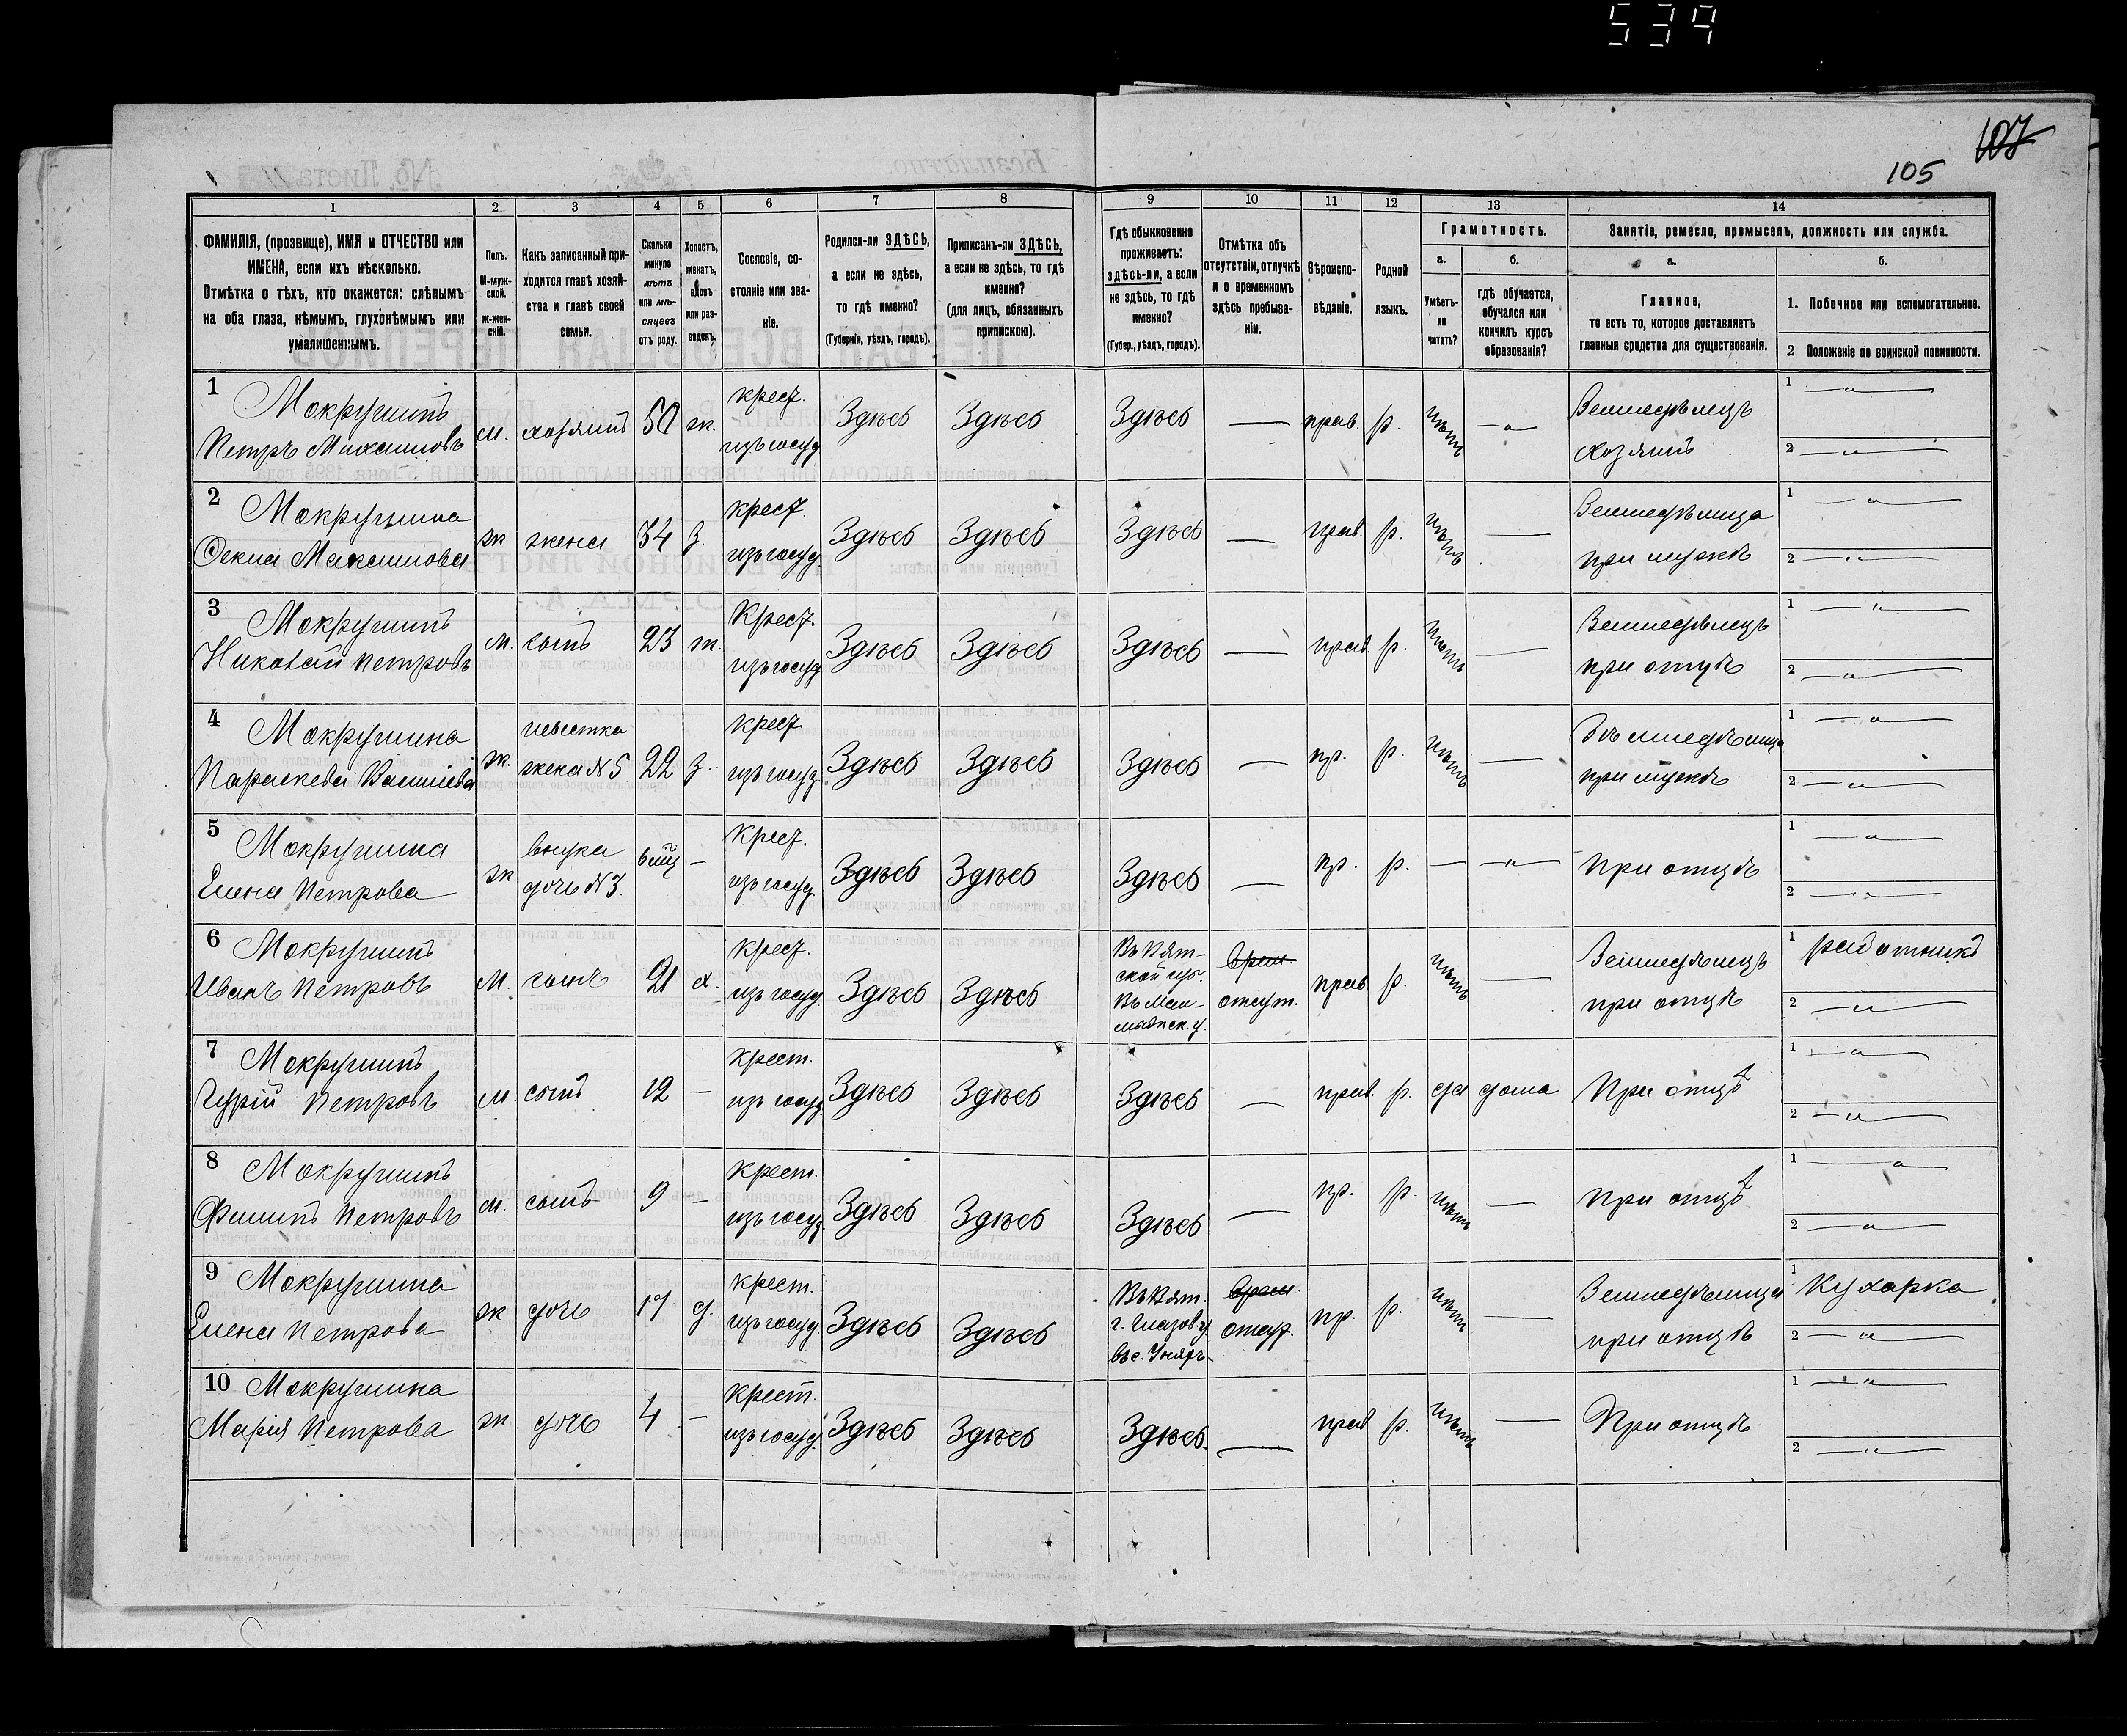 539
107
105
1
2
3
4
5
6
7
8
9
10
11
12
13
14
ФАМИЛІЯ, (прозвище), ИМЯ и ОТЧЕСТВО или
ИМЕНА, если ихъ нѣсколько.
Отмѣтка о тѣхъ, кто окажется: слѣпымъ
на оба глаза, нѣмымъ, глухонѣмымъ или
умалишеннымъ.
Полъ.
М-муж-
ской.
ж-жен-
скій.
Какъ записанный при-
ходится главѣ хозяй-
ства и главѣ своей
семьи.
Сколько
минуло
лѣтъ
или мѣ-
сяцевъ
отъ роду.
Холостъ,
женатъ,
вдовъ
или раз-
веденъ.
Сословіе, со-
стояніе или зва-
ніе.
Родился-ли ЗДѢСЬ,
а если не здѣсь,
то гдѣ именно?
(Губернія, уѣздъ, городъ).
Приписанъ-ли ЗДѢСЬ,
а если не здѣсь, то гдѣ
именно?
(для лицъ, обязанныхъ
припискою).
Гдѣ обыкновенно
проживаетъ:
здѣсь-ли, а если
не здѣсь, то гдѣ
именно?
(Губер., уѣздъ, городъ).
Отмѣтка объ
отсутствіи, отлучкѣ
и о временномъ
здѣсь пребыва-
ніи.
Вѣроиспо-
вѣданіе.
Родной
языкъ.
Грамотность.
а.
б.
Умѣетъ-
ли
читать?
гдѣ обучается,
обучался или
кончилъ курсъ
образованія?
Занятіе, ремесло, промыселъ, должность или служба.
а.
б.
Главное,
то есть то, которое доставляетъ
главныя средства для существованія.
1. Побочное или вспомогательное.
2 Положеніе по воинской повинности.
1 Мокрушинъ
Петръ Максимовъ
м. хозяинъ 50 ж.
крест.
изъ госуд.
Здѣсь Здѣсь Здѣсь — прав. р. нѣтъ —"—
Земледѣлецъ
хозяинъ
1 —"—
2 —"—
2 Мокрушина
Максимова
ж жена 54 з.
крест.
изъ госуд.
Здѣсь Здѣсь Здѣсь — прав. р. нѣтъ —
Земледѣлица
при мужѣ
1 —"—
2 —"—
3 Мокрушинъ
Николай Петровъ
м. сынъ 23 ж.
Крест.
изъ госуд
Здѣсь Здѣсь Здѣсь — прав р. нѣтъ —
Земледѣлецъ
при отцѣ
1 —"—
2 —"—
4 Мокрушина
Параскева
ж.
невестка
жена №5
22 з.
крест
изъ госуд.
Здѣсь Здѣсь Здѣсь — пр. р. нѣтъ —
Земледѣлица
при мужѣ
1 —"—
2 —"—
5 Мокрушина
Елена Петрова
ж
внука
дочь №3.
6 мц —
Крест.
изъ госуд.
Здѣсь Здѣсь Здѣсь — пр. р. — —"—
При отцѣ
1 —"—
2 —"—
6 Мокрушинъ
Иванъ Петровъ
м. сынъ 21 х.
крест.
изъ госуд
Здѣсь Здѣсь
Въ Вят-
ской губ.
Въ Мал-
мыжск. у.
врем.
отсут.
прав. р. нѣтъ —
Земледѣлецъ
при отцѣ
1 работникъ
2 —"—
7 Мокрушинъ
Гурій Петровъ
м сынъ 12 —
крест.
изъ госуд
Здѣсь Здѣсь Здѣсь — прав. р. да дома
При отцѣ
1 —"—
2 —"—
8 Мокрушинъ
Филипъ Петровъ
м. сынъ 9 —
крест.
изъ госуд.
Здѣсь Здѣсь Здѣсь — пр. р. нѣтъ —
При отцѣ
1 —"—
2 —"—
9 Мокрушина
Елена Петрова
ж дочь 17 д.
крест.
изъ госуд.
Здѣсь Здѣсь
Въ Вят.
г. Глазов. у
въ с.
врем.
отсут.
пр. р. нѣтъ —
Земледѣлица
при отцѣ
1 Кухарка
2 —"—
10 Мокрушина
Марія Петрова
ж дочь 4 —
крест.
изъ госуд.
Здѣсь Здѣсь Здѣсь. — прав р. нѣтъ —
При отцѣ
1 —"—
2 —"—